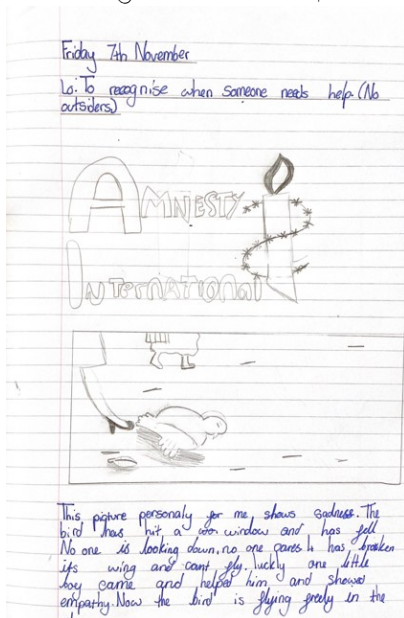 Friday 7th November
Lo: To recognise when someone needs help. (No
outsiders)
AMNESTY
INTERNATIONAL
This picture personaly for me, shows sadness. The
bird has hit a window and has fell
No one is looking down, no one cares It has broken
its wing and cant fly. luckly one little
boy came and helped him and showed
empathy. Now the bird is flying freely in the